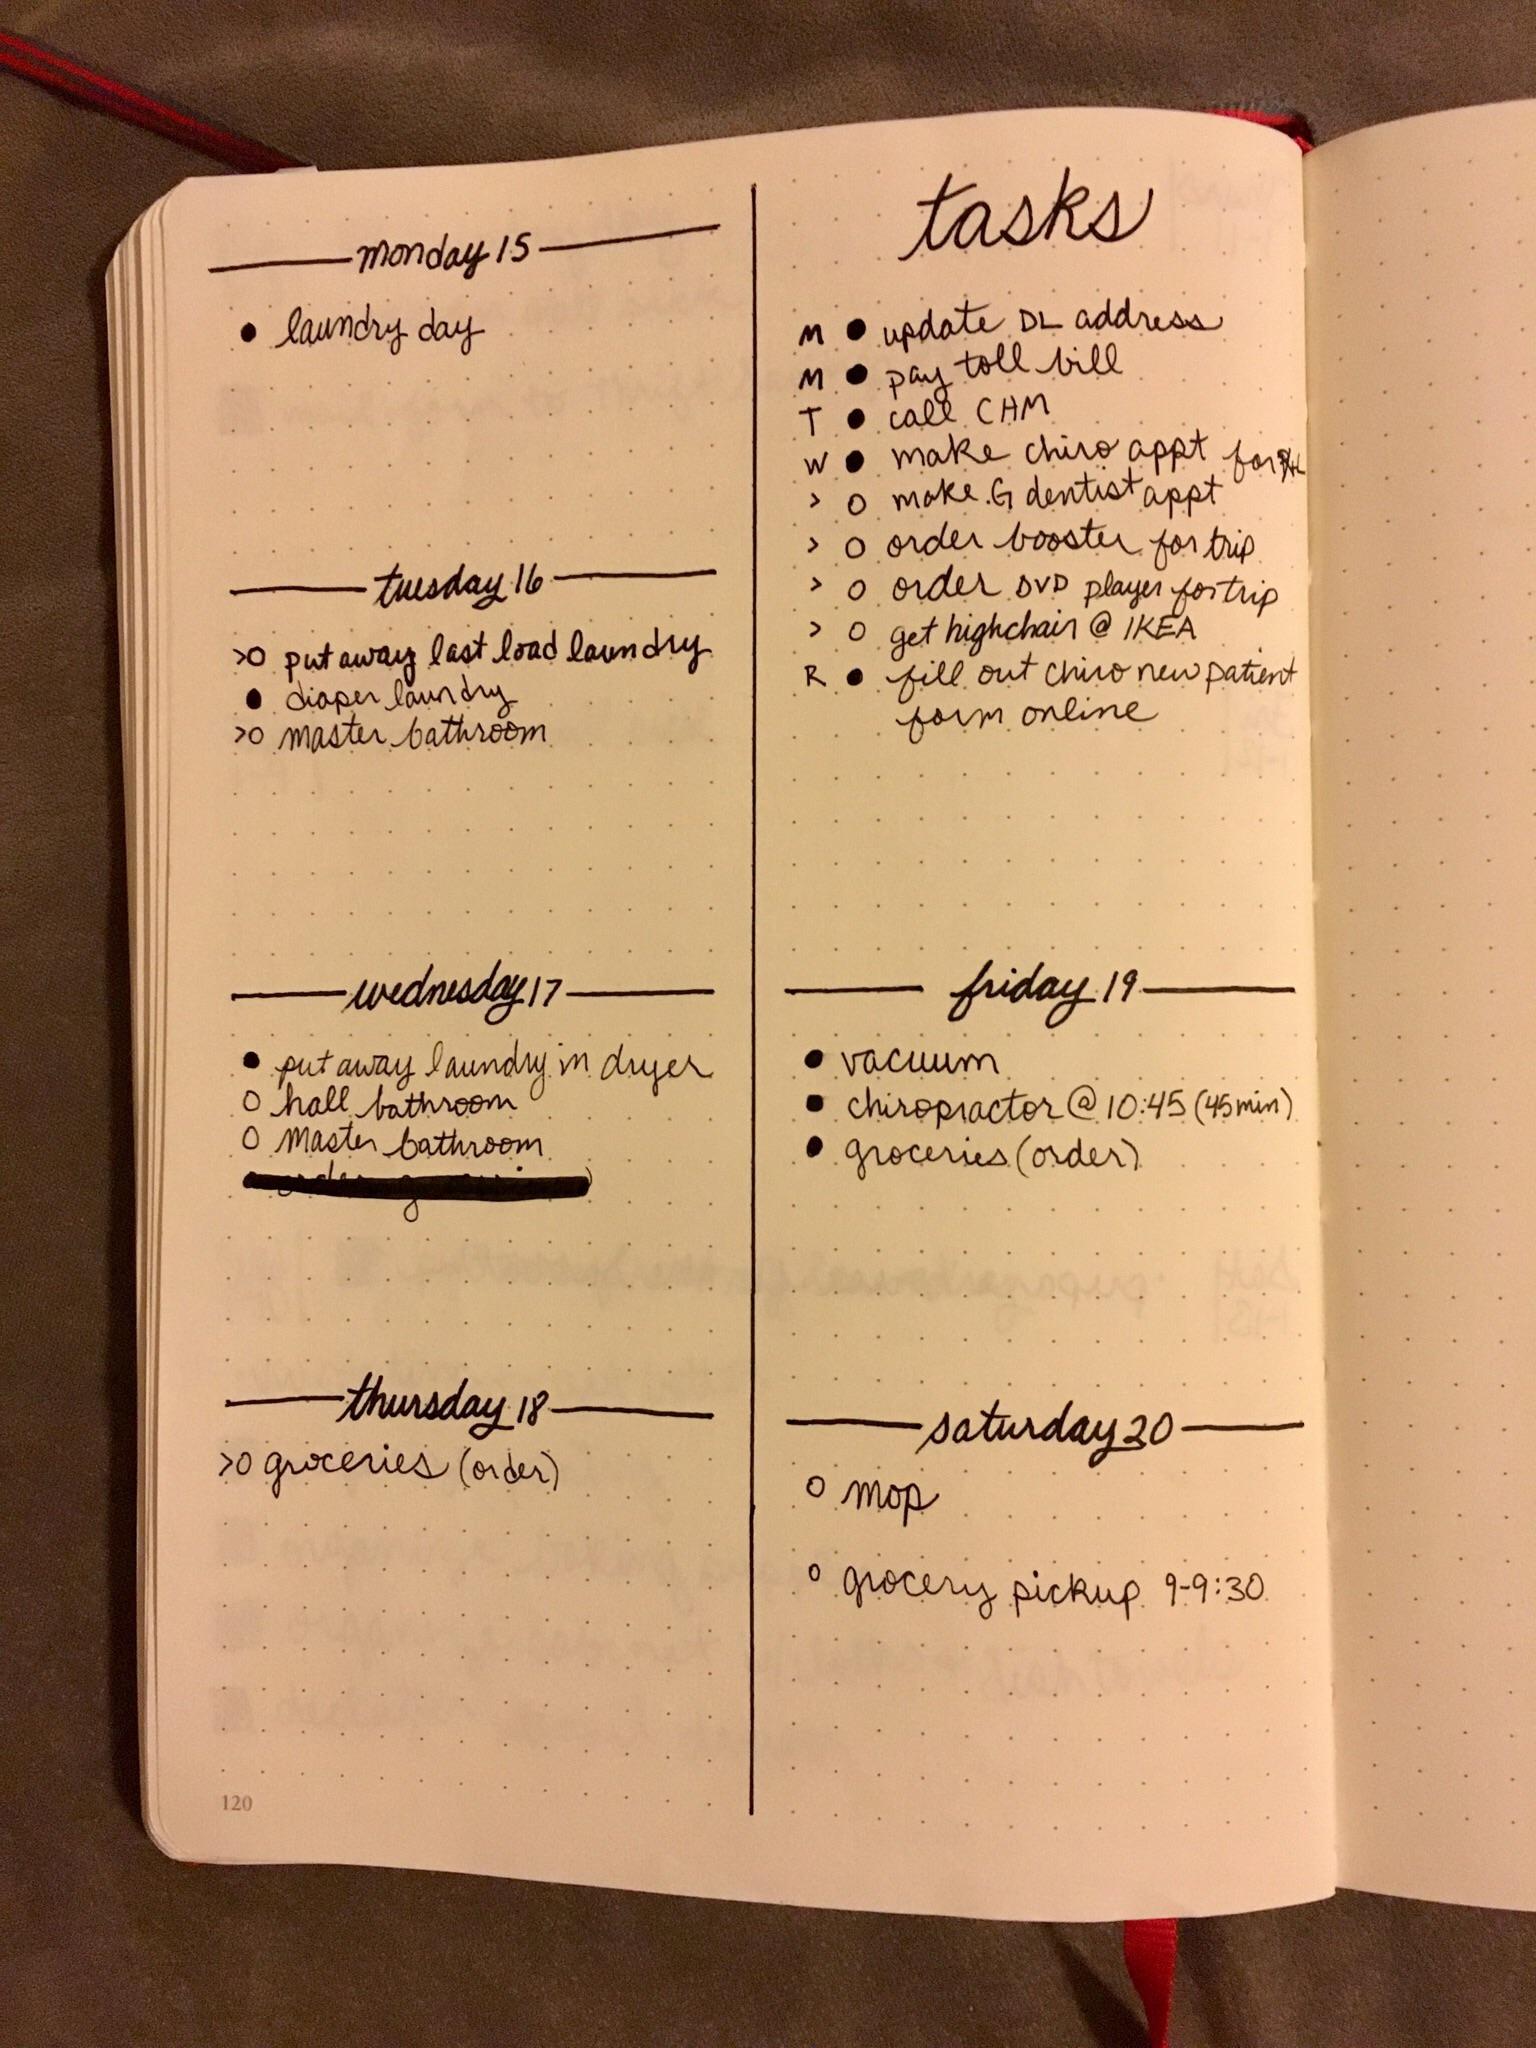 monday 15
● laundry day
tuesday 16
>○ put away last load laundry
● diaper laundry
>○ master bathroom
wednesday 17
● put away laundry in dryer
○ hall bathroom
○ master bathroom
thursday 18
>○ groceries (order)
120
tasks
M ● update DL address
M ● pay toll bill
T ● call CHM
W ● make chiro appt for
> ○ make G dentist appt
> ○ order booster for trip
> ○ order DVD player for trip
> ○ get highchair @ IKEA
R ● fill out chiro new patient
form online
friday 19
● vacuum
■ chiropractor @ 10:45 (45 min)
● groceries (order)
saturday 20
○ mop
○ grocery pickup 9-9:30